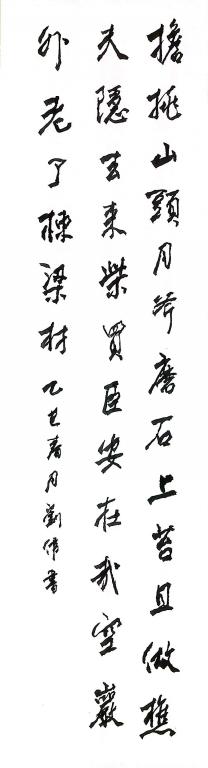 擔挑山頭月斧磨石上苔且做樵
夫隱去來柴買臣安在哉空巖
外老了棟梁材乙巳春月劉偉書